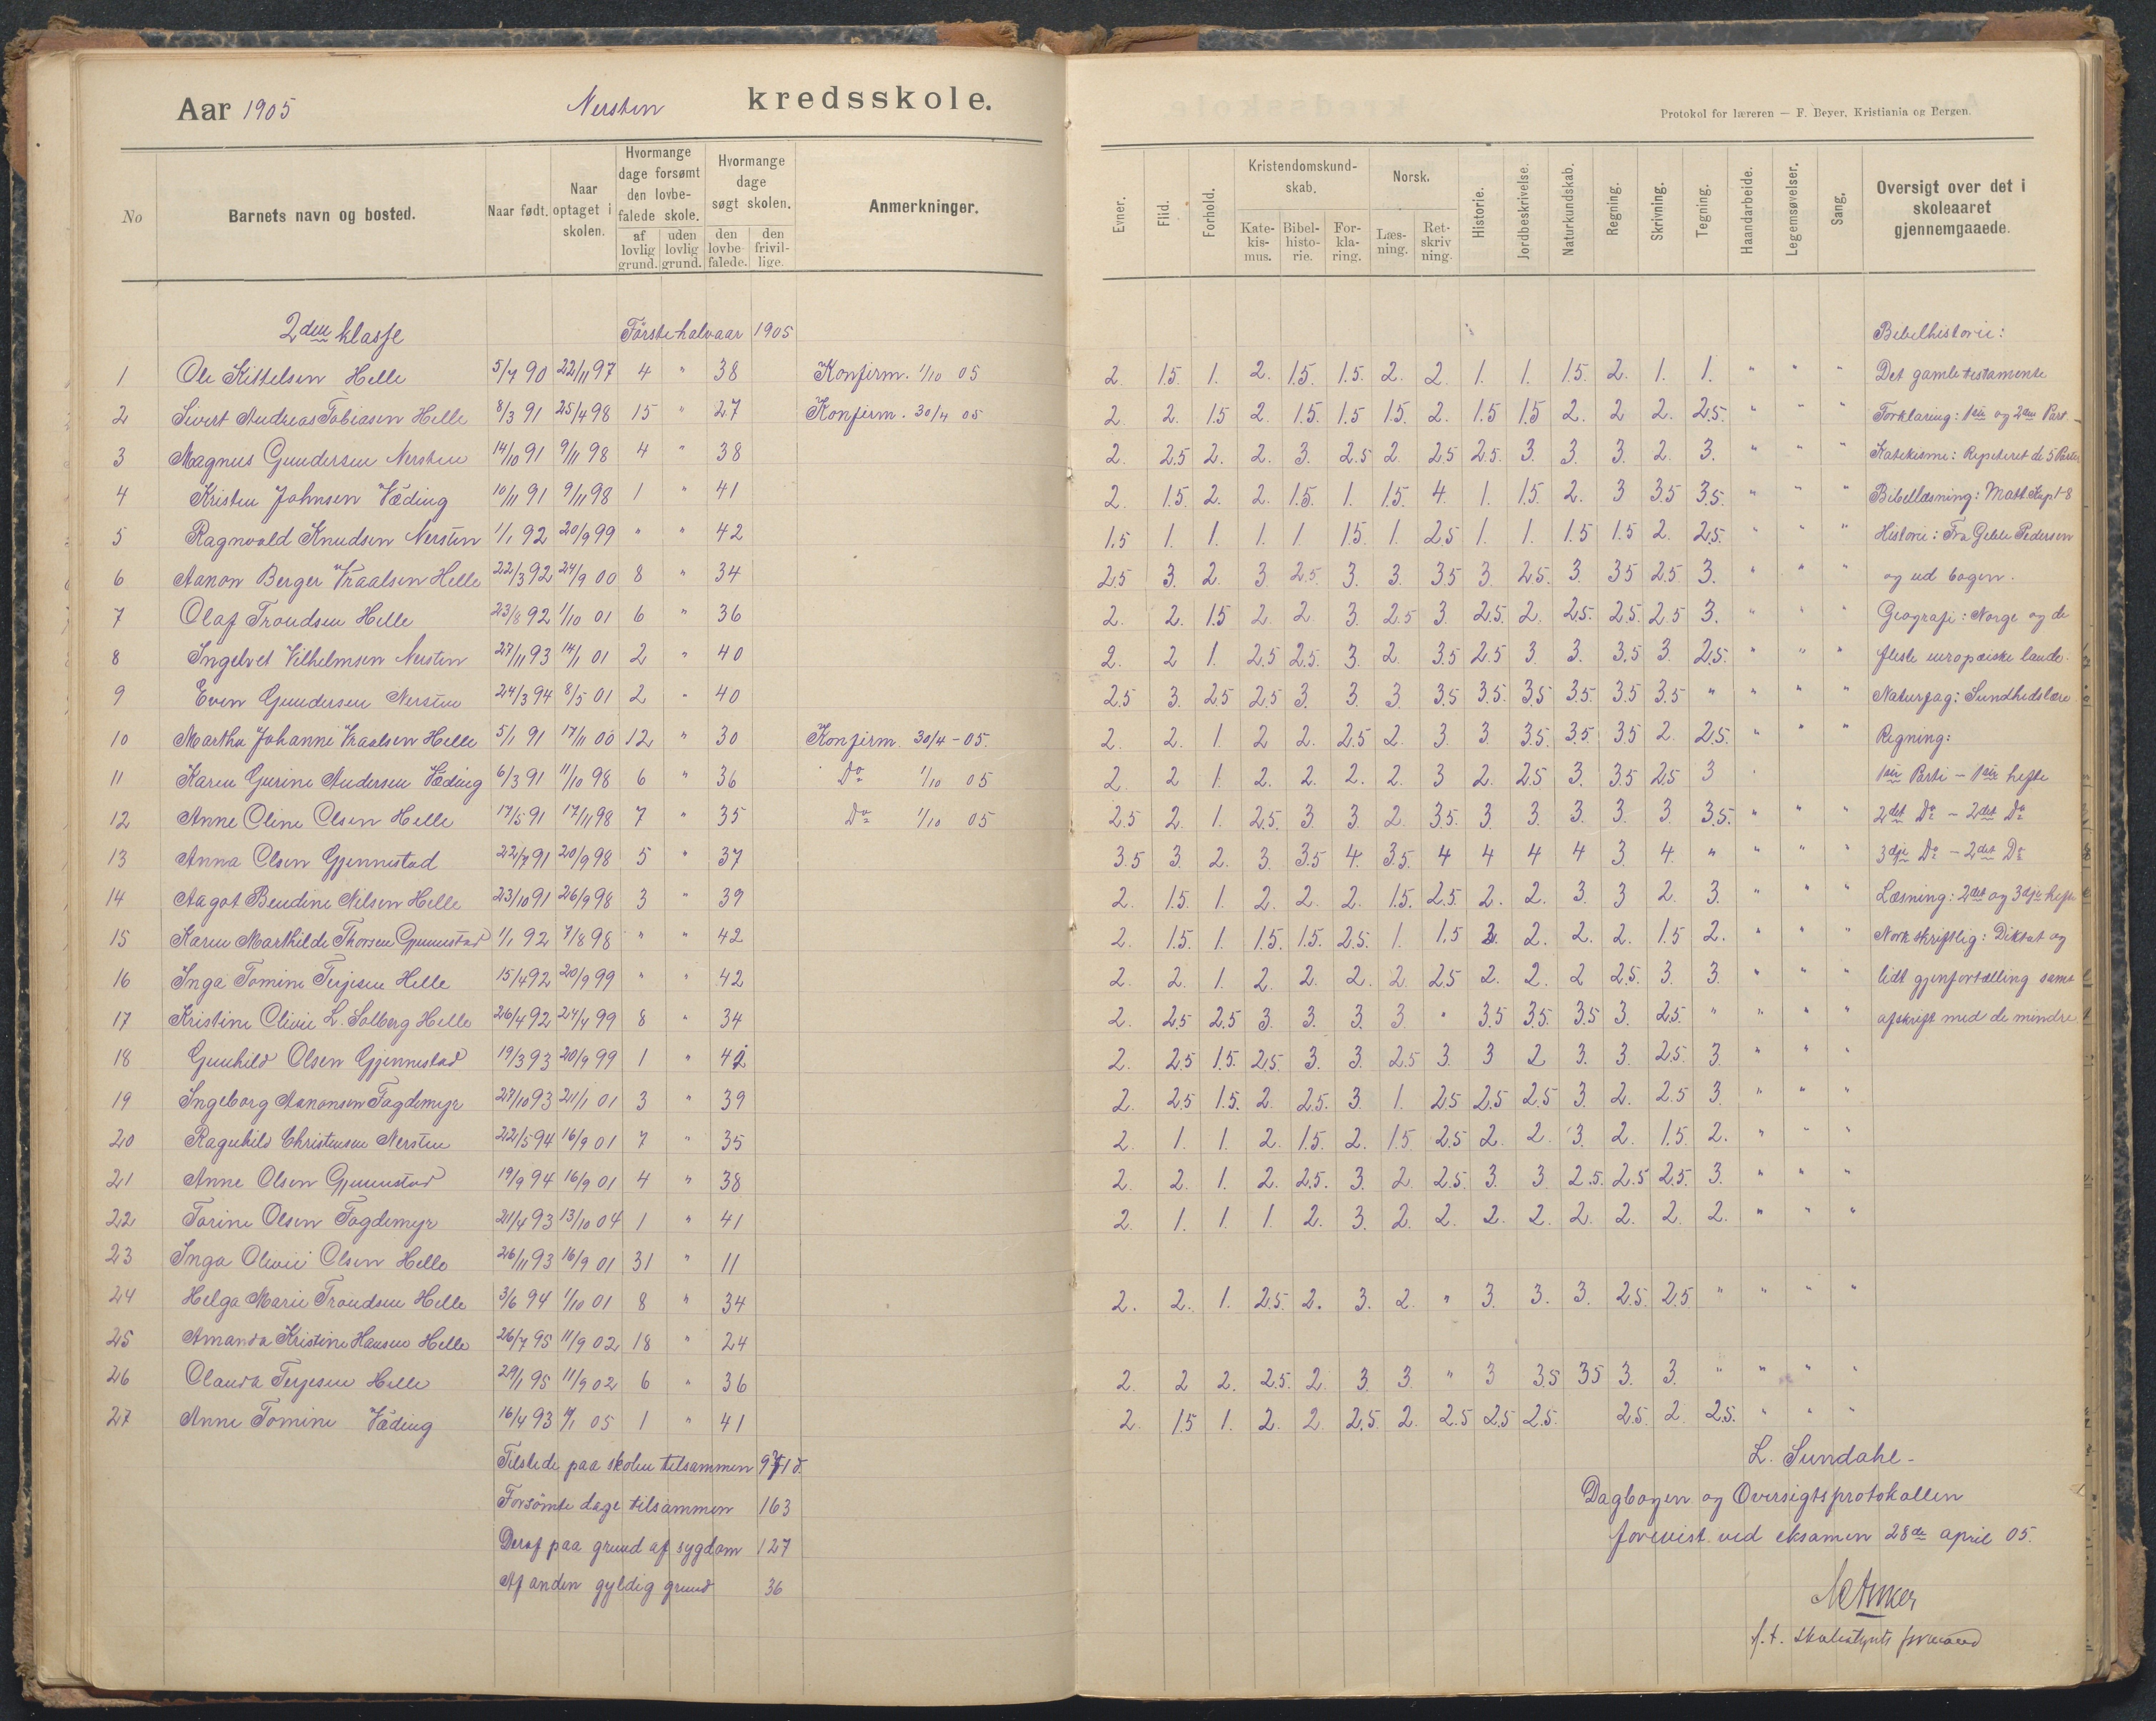 Aar 1905 Nersten kredsskole.
Protokol for læreren — F. Beyer, Kristiania og Bergen.
No
Barnets navn og bosted.
Naar født.
Naar optaget i skolen.
Hvormange dage forsømt den lovbefalede skole.
af lovlig grund.
uden lovlig grund.
Hvormange dage søgt skolen.
den lovbefalede.
den frivillige.
Anmerkninger.
Evner.
Flid.
Forhold.
Kristendomskundskab.
Katekismus.
Bibelhistorie.
Forklaring.
Norsk.
Læsning.
Retskrivning.
Historie.
Jordbeskrivelse.
Naturkundskab.
Regning.
Skrivning.
Tegning.
Haandarbeide.
Legemsøvelser.
Sang.
Oversigt over det i skoleaaret gjennemgaaede.
2den klasse Første halvaar 1905 Bibelhistorie:
1 Ole Kittelsen Helle 5/7 90 22/11 97 4 " 38 Konfirm. 1/10 05 2. 1.5 1. 2. 1.5. 1.5. 2. 2. 1. 1. 1.5. 2. 1. 1. " " " Det gamle testamente
2 Sivert Andreas Tobiasen Helle 8/3 91 25/4 98 15 " 27 Konfirm. 30/4 05 2. 2. 1.5 2. 1.5. 1.5 1.5. 2. 1.5 1.5 2. 2 2. 2.5. " " " Forklaring: 1ste og 2den Part
3 Magnus Gundersen Nersten 14/10 91 9/11 98 4 " 38 2. 2.5 2. 2. 3. 2.5 2. 2.5 2.5. 3. 3. 3. 2 3. " " " Katekisme: Repeteret de 5 Parter
4 Kristen Johnsen Væding 10/11 91 9/11 98 1 " 41 2. 1.5. 2. 2. 1.5. 1. 1.5. 4. 1. 1.5. 2. 3 3.5 3.5. " " " Bibellæsning: Matt. Kap 1-8
5 Ragnvald Knudsen Nersten 1/1 92 20/9 99 " " 42 1.5 1. 1. 1. 1 1.5. 1. 2.5 1. 1. 1.5 1.5 2. 2.5. " " " Historie: Fra Geble Pedersen
6 Aanon Berger Vraalsen Helle 22/3 92 24/9 00 8 " 34 2.5 3. 2. 3 2.5. 3. 3. 3.5 3. 2.5. 3. 3.5 2.5. 3. " " " og ud bogen.
7 Olaf Trondsen Helle 23/8 92 1/10 01 6 " 36 2. 2. 1.5 2. 2. 3. 2.5 3. 2.5. 2. 2.5. 2.5. 2.5 3. " " " Geografi: Norge og de
8 Ingelvet Vilhelmsen Nersten 27/11 93 14/1 01 2 " 40 2. 2 1. 2.5 2.5. 3. 2. 3.5 2.5 3. 3. 3.5 3. 2.5. " " " fleste europæiske lande.
9 Even Gundersen Nersten 24/3 94 8/5 01 2 " 40 2.5 3. 2.5 2.5 3. 3. 3. 3.5 3.5. 3.5 3.5. 3.5 3.5 " " " " Naturfag: Sundhedslære
10 Martha Johanne Vraalsen Helle 5/1 91 17/11 00 12 " 30 Konfirm. 30/4 - 05. 2. 2. 1. 2 2. 2.5 2. 3. 3. 3.5. 3.5. 3.5 2. 2.5. " " " Regning:
11 Karen Gurine Andersen Væding 6/3 91 11/10 98 6 " 36 Do 1/10 05 2. 2 1. 2. 2. 2. 2. 3 2. 2.5 3. 3.5 2.5 3 1ste Parti - 1ste hefte
12 Anne Oline Olsen Helle 17/5 91 17/11 98 7 " 35 Do 1/10 05 2.5 2. 1. 2.5. 3. 3. 2. 3.5. 3. 3. 3. 3. 3. 3.5. " " " 2det Do - 2det Do
13 Anna Olsen Gjennestad 22/7 91 20/9 98 5 " 37 3.5 3. 2. 3. 3.5 4. 3.5. 4 4 4 4 3. 4. " " " " 3dje Do - 2det Do
14 Aagot Bendine Nilsen Helle 23/10 91 26/9 98 3 " 39 2. 1.5. 1. 2. 2. 2. 1.5. 2.5. 2. 2. 3. 3 2. 3. " " " Læsning: 2det og 3dje hefte
15 Karen Marthilde Thorsen Gjennestad 1/1 92 7/8 98 " " 42 2. 1.5. 1. 1.5. 1.5. 2.5. 1. 1.5 2. 2. 2. 2. 1.5 2. " " " Norsk skriftlig: Diktat og
16 Inga Tomine Terjesen Helle 15/4 92 20/9 99 " " 42 2. 2. 1. 2. 2. 2. 2 2.5 2. 2. 2 2.5. 3. 3. " " " lidt gjenfortælling samt
17 Kristine Olivie L. Solberg Helle 26/4 92 24/4 99 8 " 34 2. 2.5 2.5 3. 3. 3. 3 " 3.5 3.5. 3.5 3. 2.5. " " " " afskrift med de mindre.
18 Gunhild Olsen Gjennestad 19/3 93 20/9 99 1 " 42 2. 2.5 1.5. 2.5. 3. 3. 2.5 3. 3 2 3. 3. 2.5. 3. " " "
19 Ingeborg Aanonsen Fagdemyr 27/10 93 21/1 01 3 " 39 2. 2.5 1.5. 2. 2.5. 3. 1. 2.5 2.5 2.5 3. 2. 2.5 3. " " "
20 Ragnhild Christensen Nersten 22/5 94 16/9 01 7 " 35 2. 1. 1. 2. 1.5. 2. 1.5 2.5 2. 2. 3. 2. 1.5. 2. " " "
21 Anne Olsen Gjennestad 19/9 94 16/9 01 4 " 38 2. 2. 1. 2. 2.5. 3. 2. 2.5. 3. 3. 2.5. 2.5 2.5. 3. " " "
22 Torine Olsen Fagdemyr 21/4 93 13/10 04 1 " 41 2. 1. 1. 1. 2. 3. 2. 2. 2. 2. 2. 2. 2. 2. " " "
23 Inga Olivie Olsen Helle 26/11 93 16/9 01 31 " 11
24 Helga Marie Trondsen Helle 3/6 94 1/10 01 8 " 34 2. 2. 1. 2.5. 2. 3. 2. " 3. 3. 3. 2.5. 2.5 " " " "
25 Amanda Kristine Hansen Helle 26/7 95 11/9 02 18 " 24
26 Olauda Terjesen Helle 29/1 95 11/9 02 6 " 36 2. 2 2. 2.5. 2. 3. 3. " 3 3.5 3.5 3. 3. " " " "
27 Anne Tomine Væding 16/4 93 05 1 " 41 2. 1.5 1. 2. 2. 2.5. 2. 2.5 2.5 2.5. 2.5. 2. 2.5. " " "
Tilstede paa skolen tilsammen d.
Forsømte dage tilsammen 163
Deraf paa grund af sygdom 127
Af anden gyldig grund 36
L. Sundahl-
Dagbogen og Oversigtsprotokollen
forevist ved eksamen 28de april 05.
f. t. skolestyrets formand